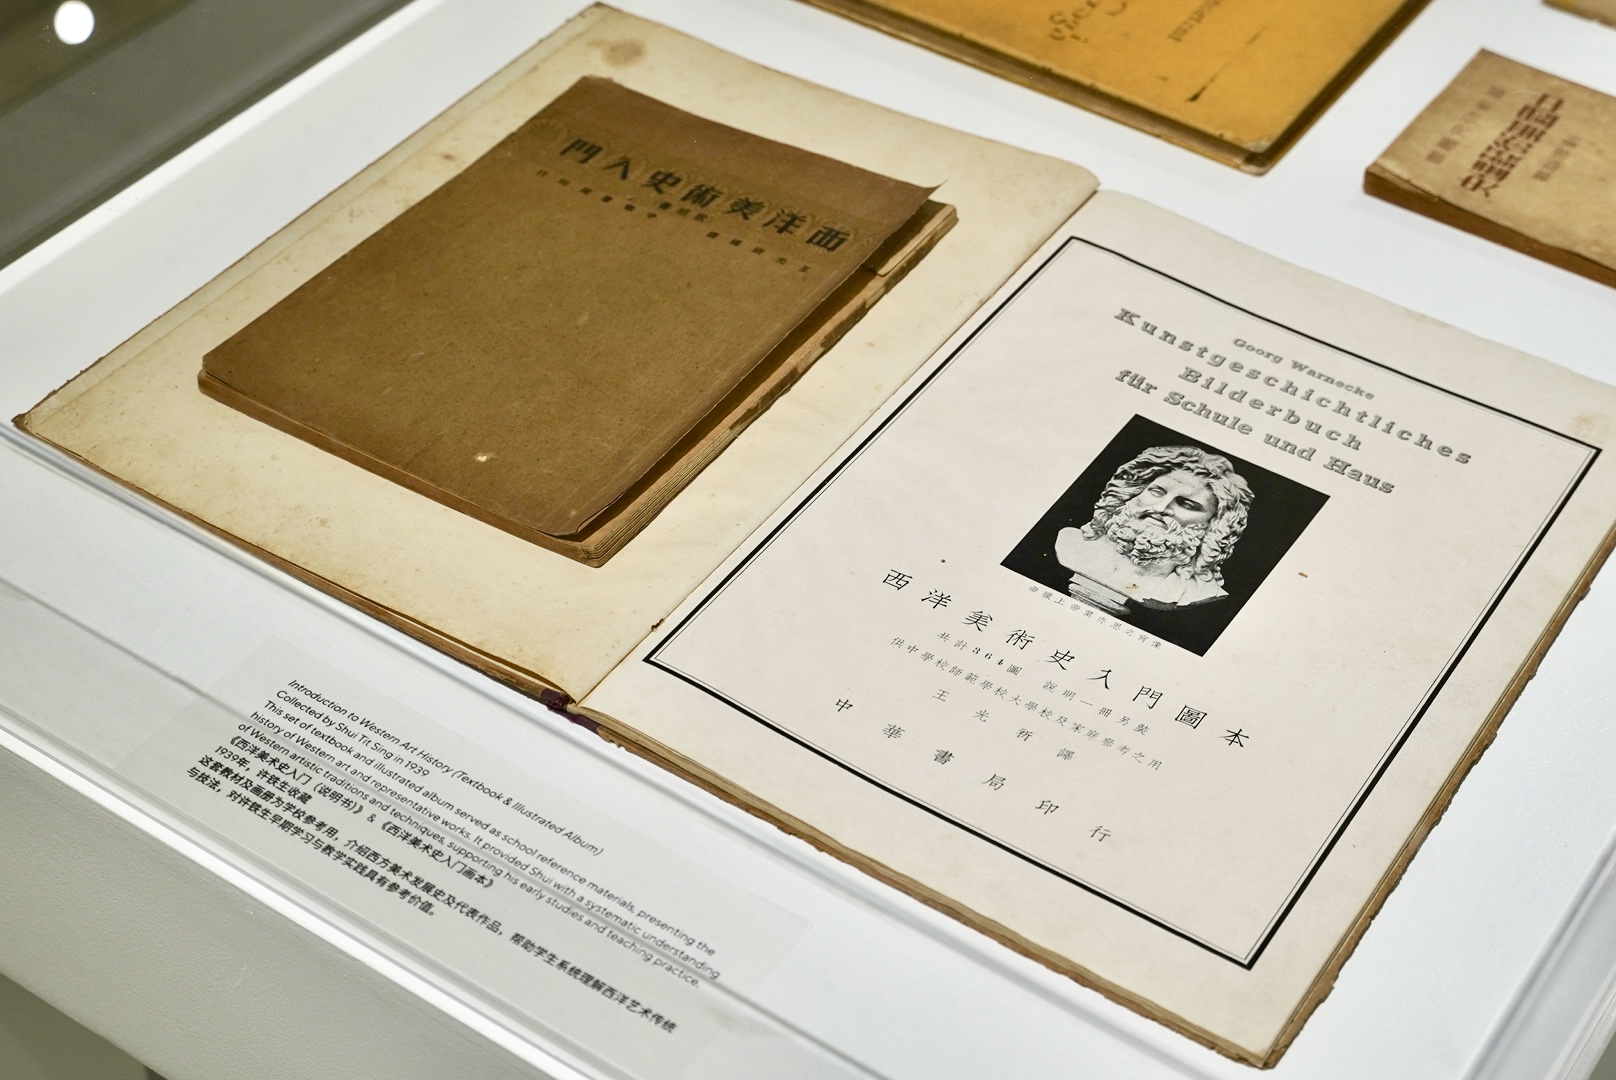 西洋美術史入門
Georg Warnecke
Kunstgeschichtliches
Bilderbuch
für Schule und Haus
西洋美術史入門圖本
共計364圖 說明一冊另裝
供中學校師範學校大學校及家庭參考之用
王光祈譯
中華書局印行
Introduction to Western Art History (Textbook & Illustrated Album)
Collected by Shui Tit Sing in 1939
This set of textbook and illustrated album served as school reference materials, presenting the
history of Western art and representative works. It provided Shui with a systematic understanding
of Western artistic traditions and techniques, supporting his early studies and teaching practice.
《西洋美术史入门（说明书）》 & 《西洋美术史入门画本》
1939年，许铁生收藏
这套教材及画册为学校参考用，介绍西方美术发展史及代表作品，帮助学生系统理解西洋艺术传统
与技法，对许铁生早期学习与教学实践具有参考价值。